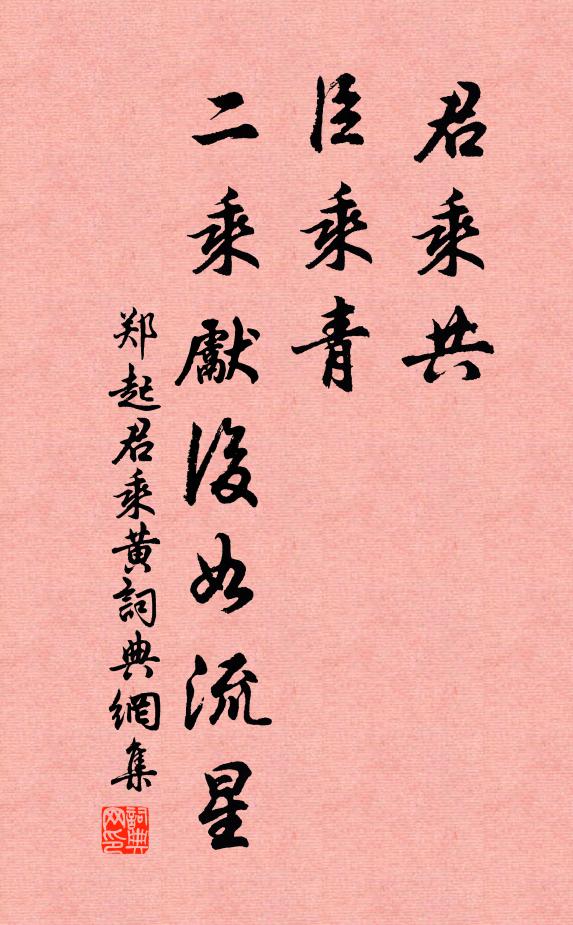 君乘共
臣乘青
二乘獻後如流星
郑起君乘黄詞典網集
詞典网印